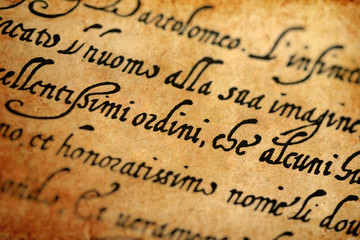 Bartolomeo. L'infinit
cato l'huomo alla sua imagine
cellentissimi ordini, che alcuni ha
no, et honoratissimo nome li dou
ond
Et veramen